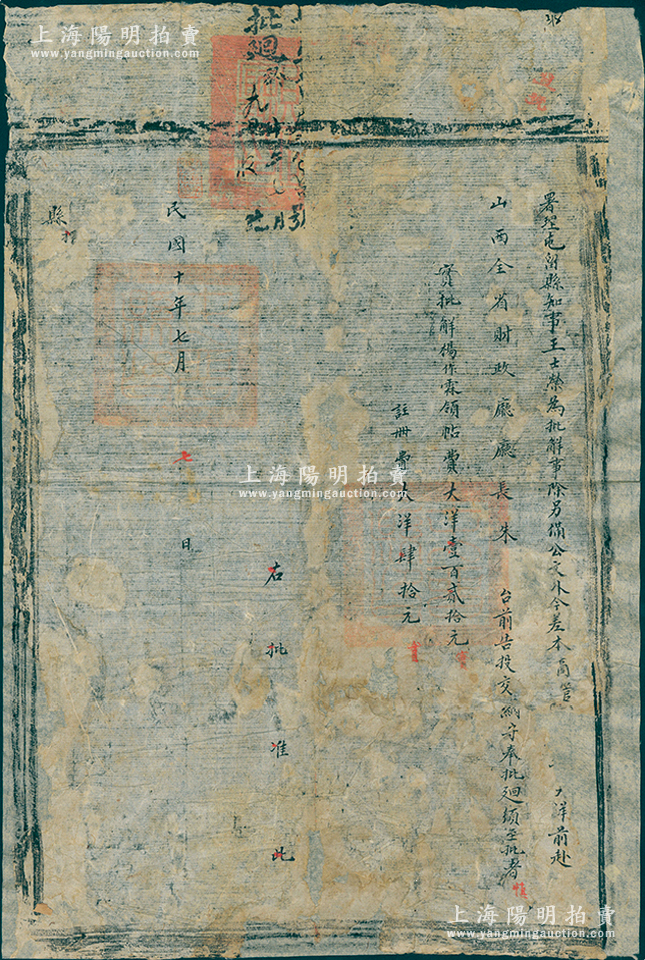 署理屯留縣知事王士榮為批解事除另備公文外今差本商管
大洋前赴
山西全省財政廳廳長朱 台前告投交納守奉批廻須至批者
實批解楊作霖領帖費大洋壹百貳拾元
註冊費大洋肆拾元
右批准此
民國十年七月七日
縣
批廻
上海陽明拍賣
www.yangmingauction.com
上海陽明拍賣
www.yangmingauction.com
上海陽明拍賣
www.yangmingauction.com
上海陽明拍賣
www.yangmingauction.com